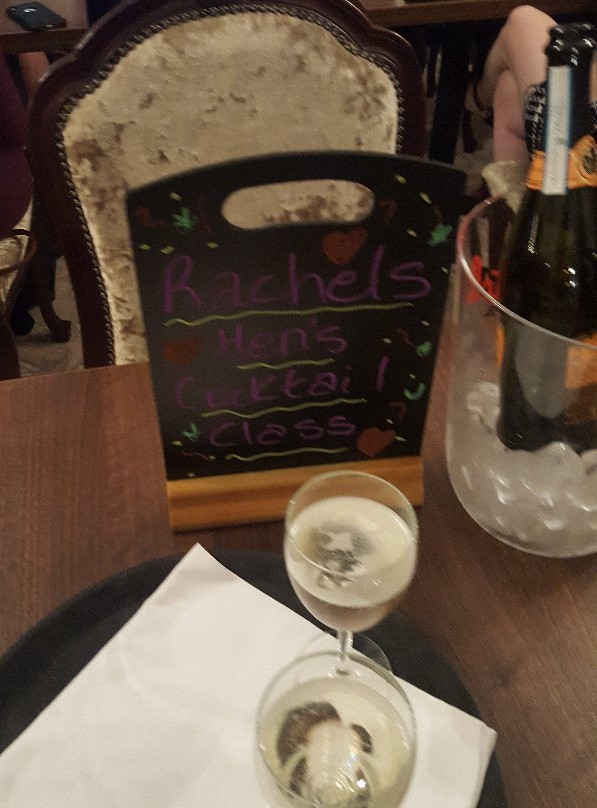 Rachels
Hen's
Cocktail
Class